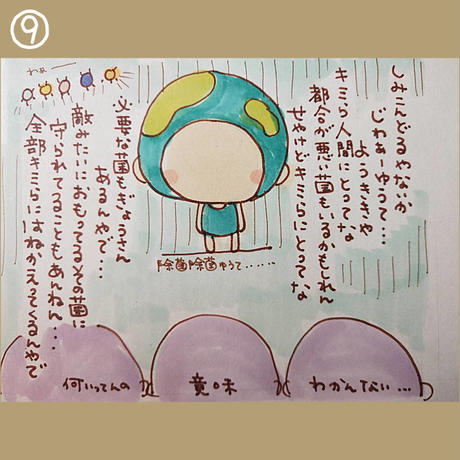 ⑨
しみこんどるやないか
じわぁーゆうて…
ようききや
キミら人間にとってな
都合が悪い菌もいるかもしれん
せやけどキミらにとってな
必要な菌もぎょうさん
あるんやで…
敵みたいにおもってるその菌に
守られてることもあんねん…
全部キミらにはねかえってくるんやで
わぁー
除菌除菌ゆうて……
何いってんの
意味
わかんない…